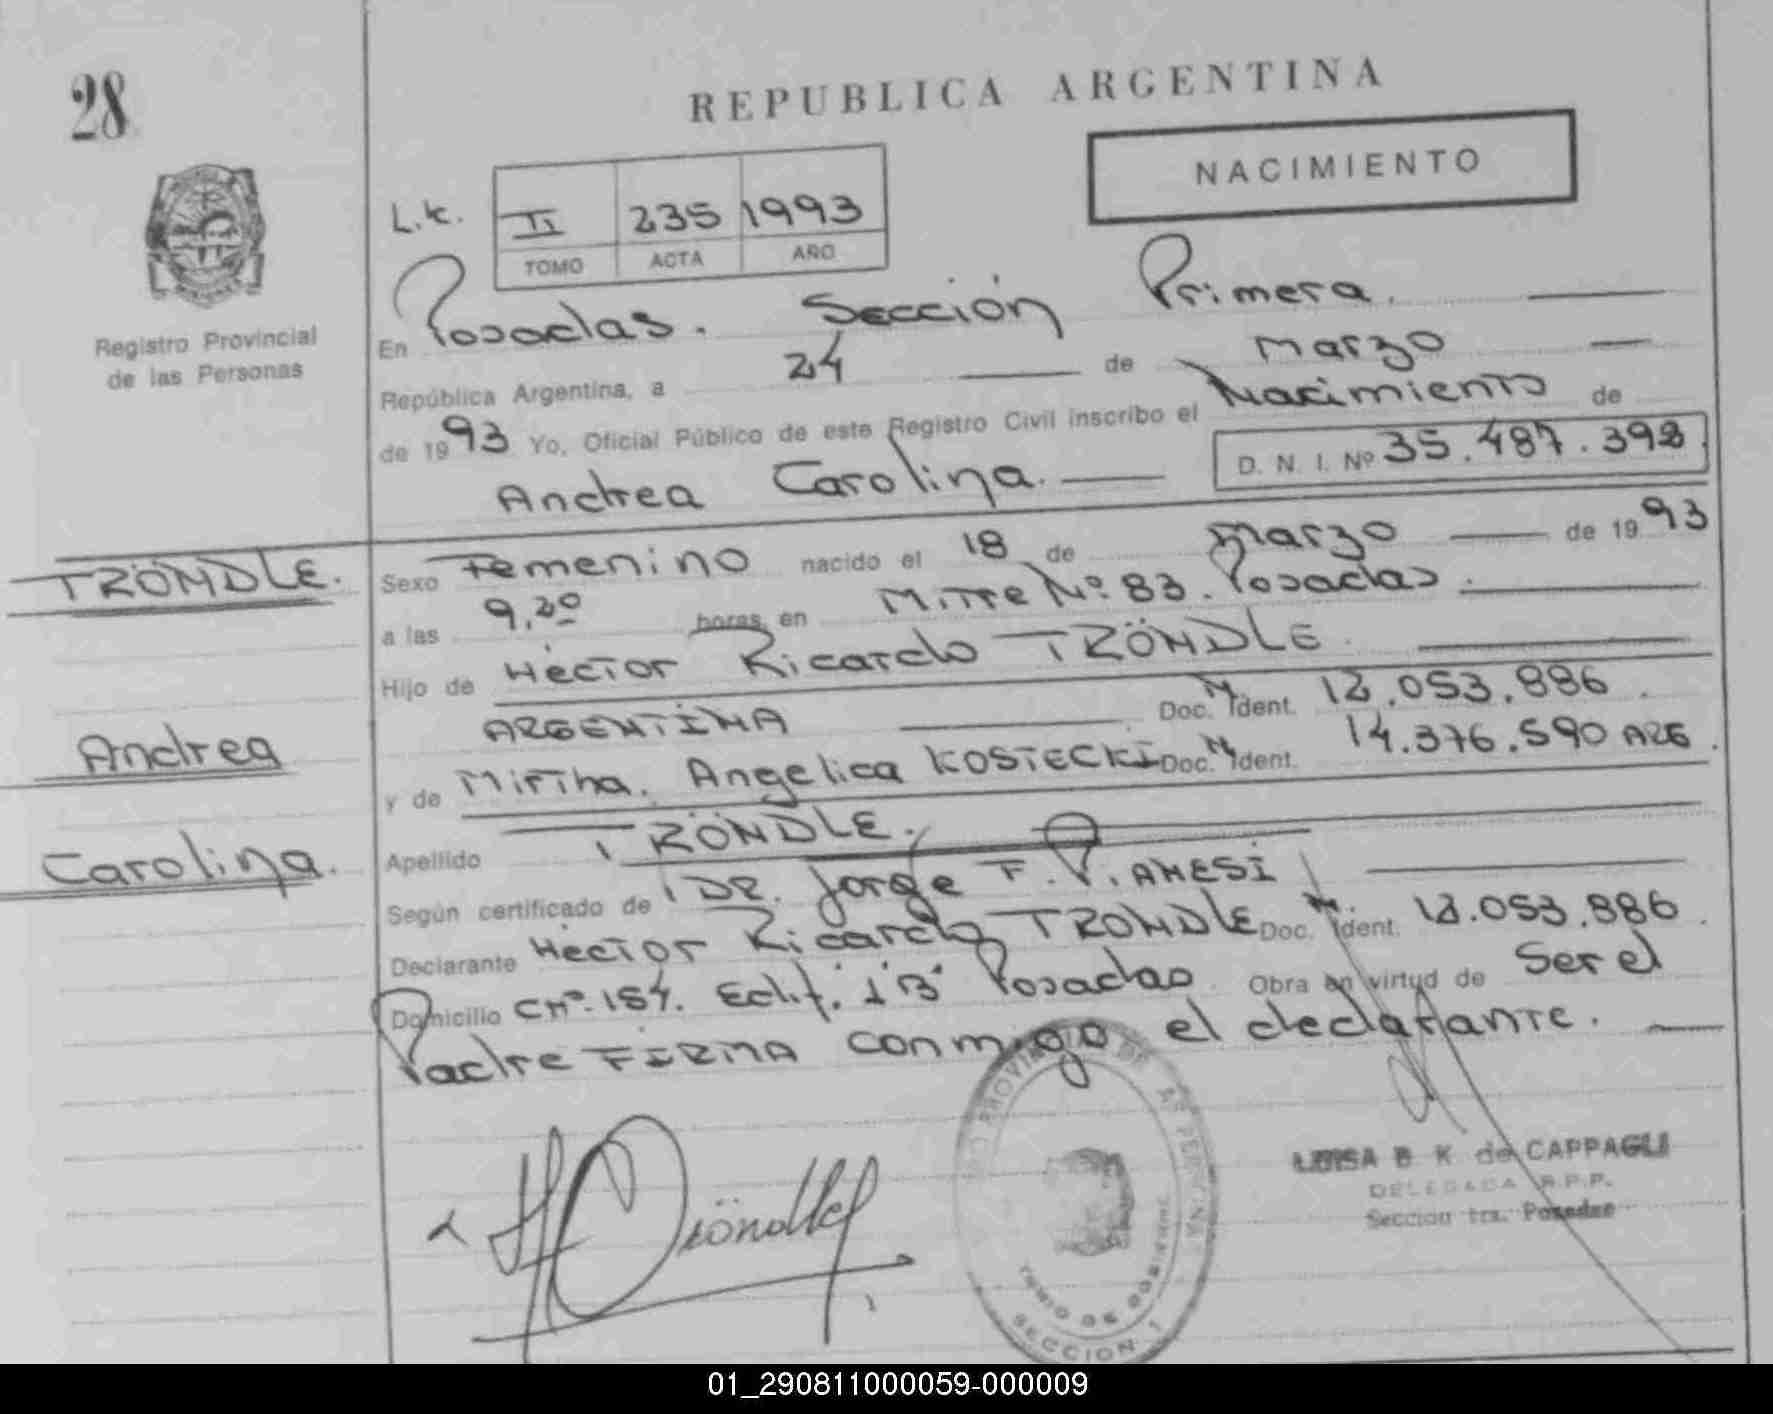 28
REPUBLICA ARGENTINA
NACIMIENTO
L.K.
II 235 1993
TOMO ACTA AÑO
Registro Provincial
de las Personas
En Posadas. Sección Primera.
República Argentina, a 24 de Marzo
de 1993 Yo, Oficial Público de este Registro Civil inscribo el Nacimiento de
Andrea Carolina.
D. N. I. Nº 35.487.398
TRÖNDLE.
Sexo Femenino nacido el 18 de Marzo de 1993
a las 9,20 horas en Mitre Nº 83. Posadas.
Hijo de Héctor Ricardo TRÖNDLE.
ARGENTINA Doc. Ident. 12.053.886.
Andrea
y de Mirtha. Angélica KOSTECKI Doc. Ident. 14.376.590 ARG.
Apellido TRÖNDLE.
Carolina.
Según certificado de DR. Jorge F. PIANESI
Declarante Héctor Ricardo TRÖNDLE Doc. Ident. 12.053.886.
Domicilio CHº.154. Edif. 1 "B" Posadas Obra en virtud de Ser el
Padre FIRMA conmigo el declarante.
Tröndle
LUISA B K de CAPPAGLI
DELEGADA R.P.P.
Seccion 1ra. Posadas
SECCION 1
01_290811000059-000009